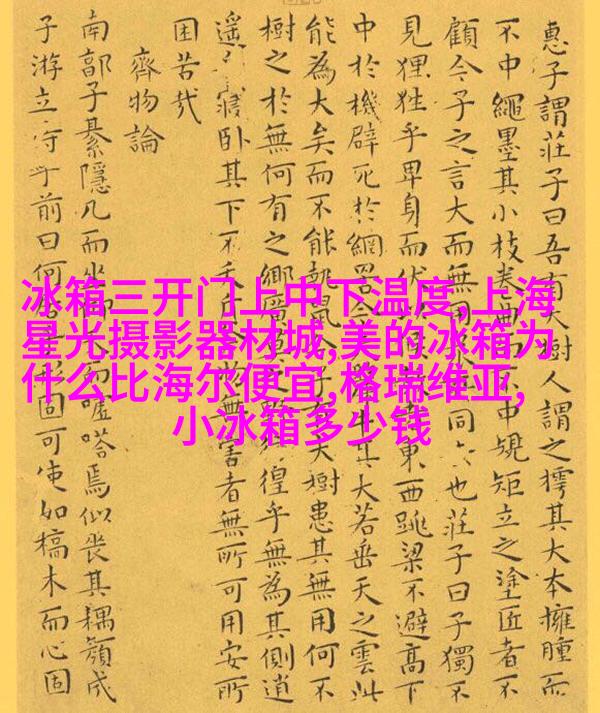 惠子謂莊子曰吾有大樹人謂之樗其大本擁腫而
不中繩墨其小枝卷而不中規矩立之塗匠者不
顧今子之言大而無用同也莊子曰子獨不
見狸狌乎卑身而伏東西跳梁不避高下
中於機辟死於網罟今牛其大若垂天之雲此
能為大矣而不能執鼠子大樹患其無用何不
樹之於無何有之鄉廣徨乎無為其側逍
遙寢卧其下不夭物無害者無所可用安所
困苦哉
齊物論
南郭子綦隱几而坐而噓嗒焉似喪其耦顏成
子游立侍乎前曰何固可使如槁木而心固
冰箱三开门上中下温度,上海
星光摄影器材城,美的冰箱为
什么比海尔便宜,格瑞维亚,
小冰箱多少钱